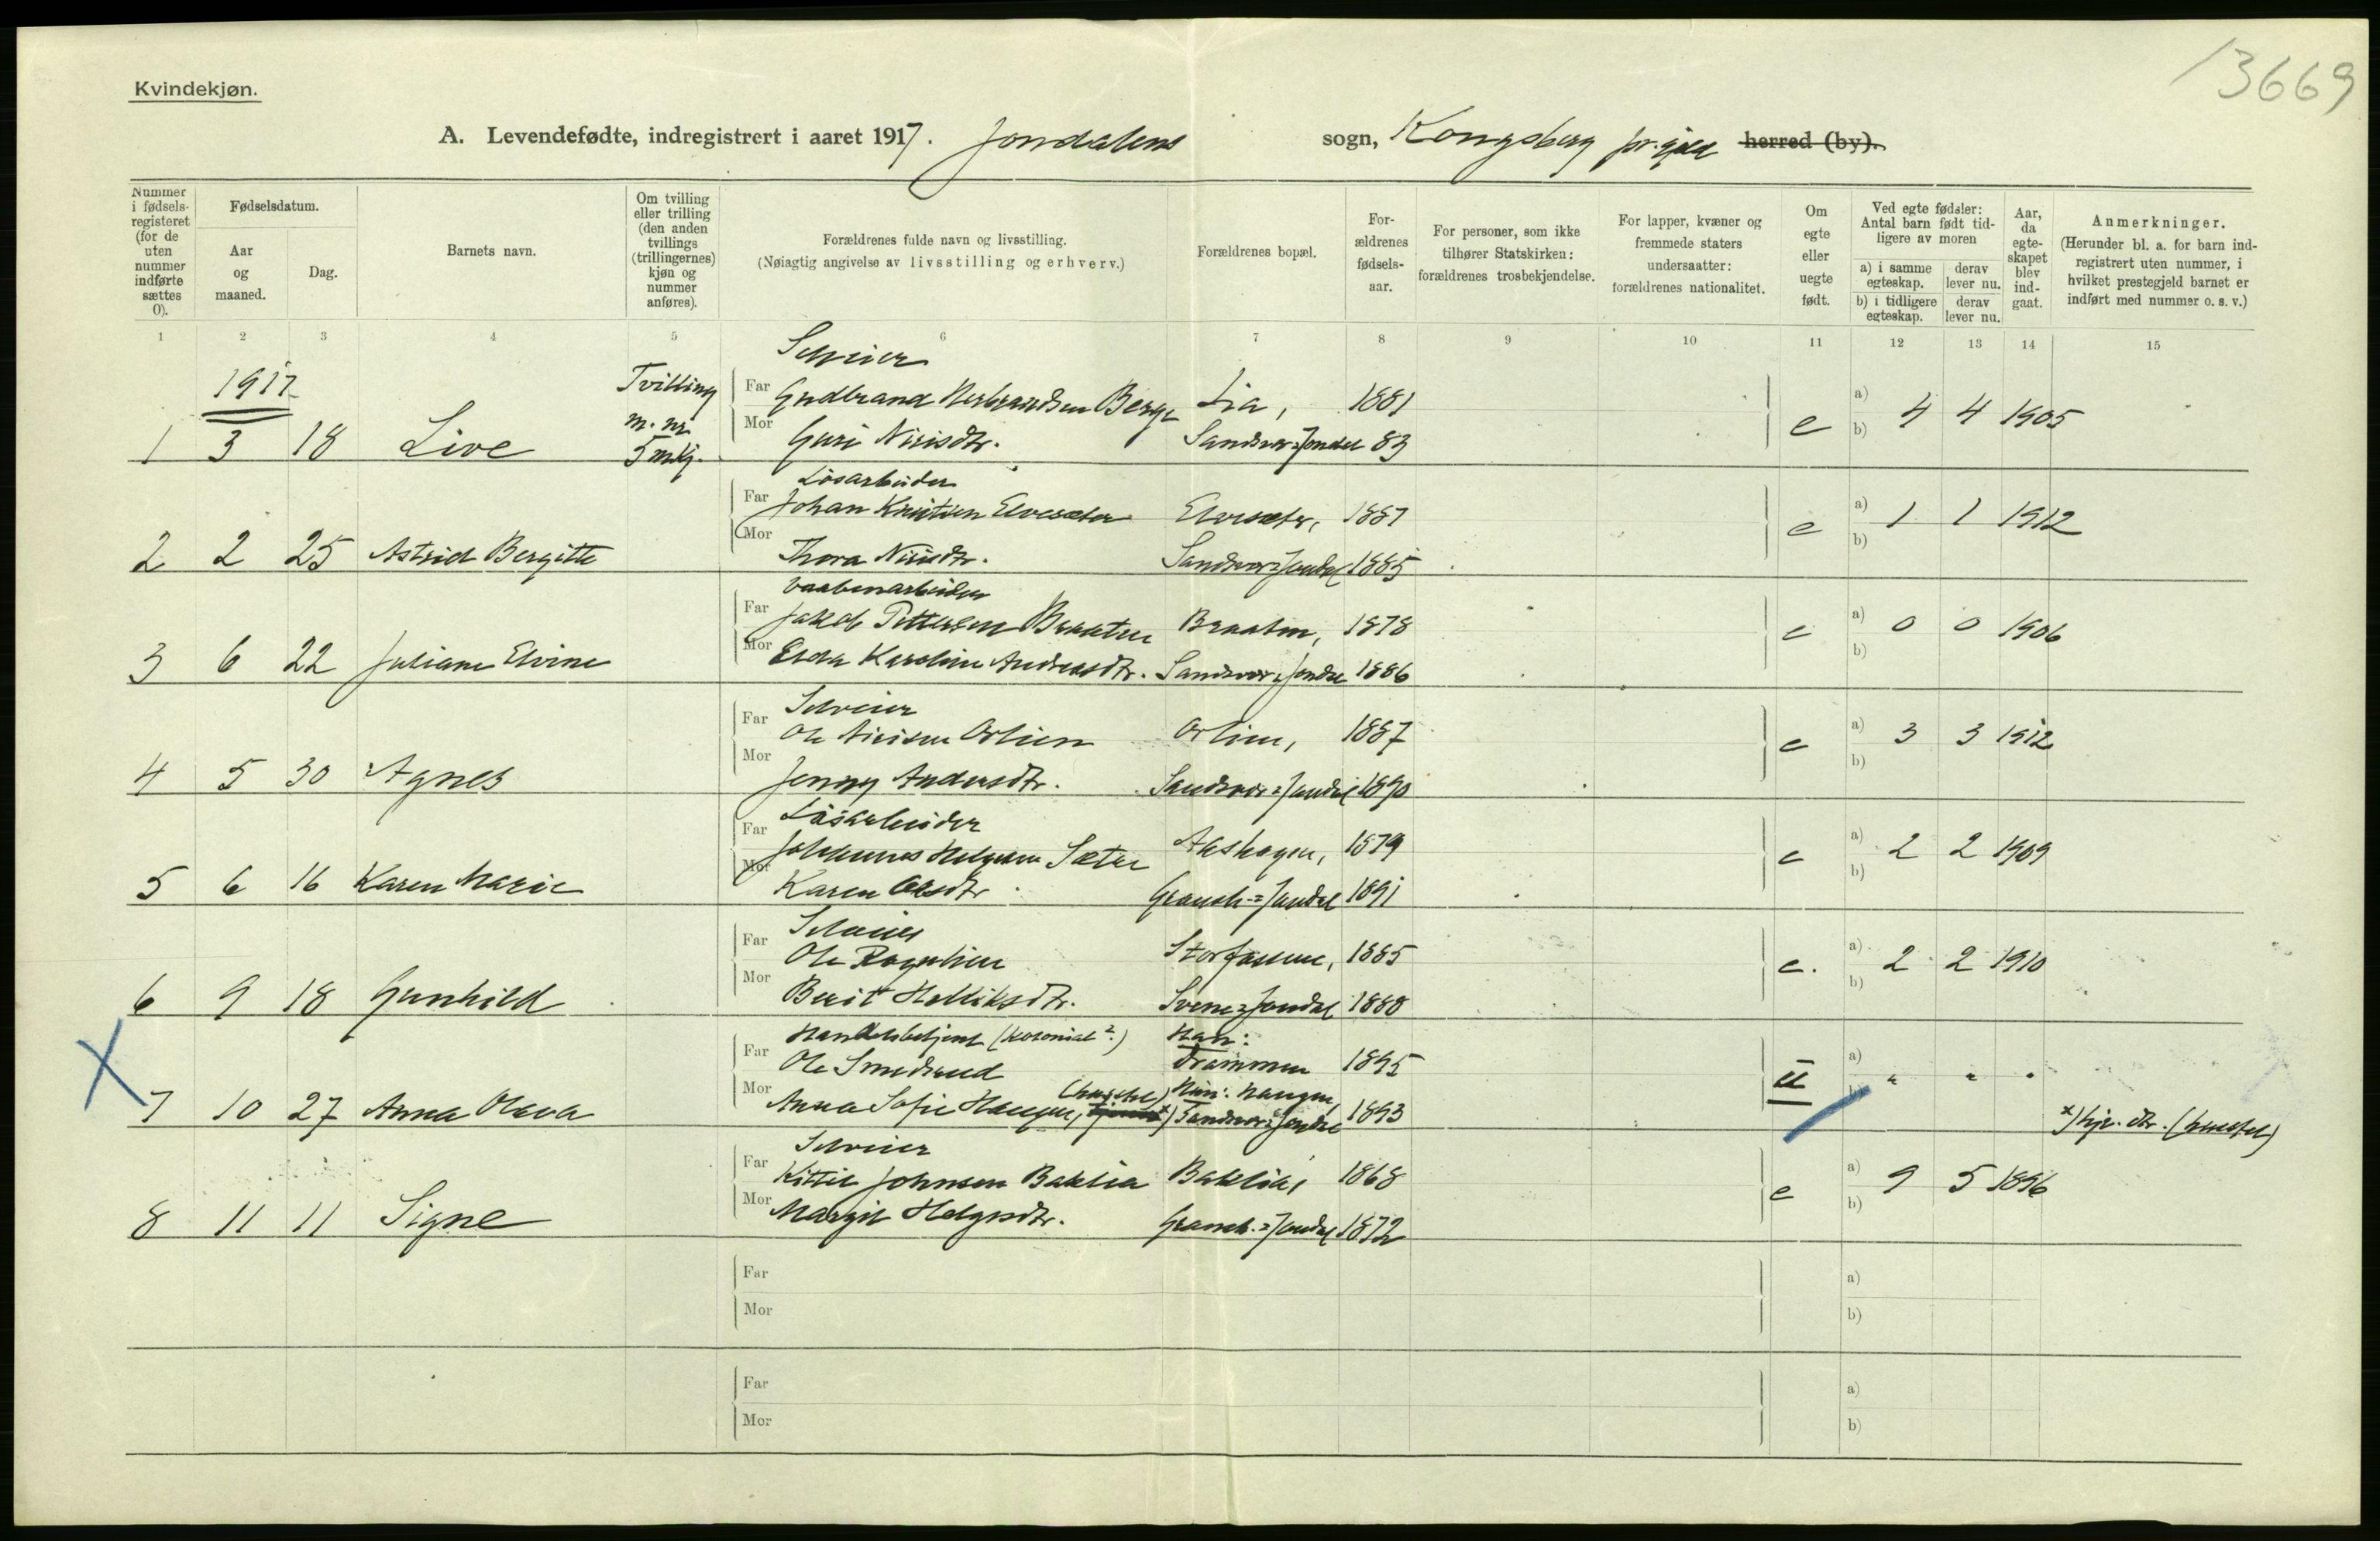 13669
Kvindekjøn.
A. Levendefødte, indregistrert i aaret 1917. Jondalens sogn, Kongsberg pr.gjeld herred (by).
Nummer i fødselsregisteret (for de uten nummer indførte sættes 0).
Fødselsdatum.
Aar og maaned.
Dag.
Barnets navn.
Om tvilling eller trilling (den anden tvillings (trillingernes) kjøn og nummer anføres).
Forældrenes fulde navn og livsstilling.
(Nøiagtig angivelse av livsstilling og erhverv.)
Forældrenes bopæl.
Forældrenes fødselsaar.
For personer, som ikke tilhører Statskirken: forældrenes trosbekjendelse.
For lapper, kvæner og fremmede staters undersaatter: forældrenes nationalitet.
Om egte eller uegte født.
Ved egte fødsler: Antal barn født tidligere av moren
a) i samme egteskap. derav lever nu.
b) i tidligere egteskap. derav lever nu.
Aar, da egteskapet blev indgaat.
Anmerkninger.
(Herunder bl. a. for barn indregistrert uten nummer, i hvilket prestegjeld barnet er indført med nummer o. s. v.)
1 2 3 4 5 6 7 8 9 10 11 12 13 14 15
1917
Selveier
Tvilling Far Gudbrand Herbrandsen Berge Lia, 1881 a)
1 3 18 Live m. nr. 5 mkj. Mor Guri Nirisdtr. Sandsvær=Jondal 83 e b) 4 4 1905
Løsarbeider
Far Johan Knutsen Elvesæter Elvesæter, 1887 a) 1 1 1912
2 2 25 Astrid Bergitte Mor Thora Nirisdtr. Sandsvær=Jondal 1885 e b)
Vaabenarbeider
Far Jakob Pettersen Braaten Braaten, 1878 a) 0 0 1906
3 6 22 Juliane Elvine Mor Karoline Andreasdtr. Sandsvær=Jondal 1886 e b)
Selveier
Far Ole Nirisen Orlien Orlien, 1887 a) 3 3 1912
4 5 30 Agnes Mor Jenny Andersdtr. Sandsvær=Jondal 1890 e b)
Løsarbeider
Far Johannes Helgesen Sæter 1879 a) 2 2 1909
5 6 16 Karen Marie Mor Karen Olsdtr. Gransh.=Jondal 1891 e b)
Selveier
Far Ole 1885 a) 2 2 1910
6 9 18 Gunhild Mor Berit Helliksdtr. Svene=Jondal 1888 e. b)
Handelsbetjent (Kolonial?) Han:
Far Ole Smedsrud Drammen 1895 a) " " "
(husstel) Hun: Haugen,
X 7 10 27 Anna Olava Mor Anna Sofie Haugen, x) Sandsvær=Jondal 1893 u b)
x) hj. dtr. (husstel)
Selveier
Far Kittil Johnsen Baklia Baklia, 1868 a) 9 5 1896
8 11 11 Signe Mor Margit Helgesdtr. Gransh.=Jondal 1872 e b)
Far a)
Mor b)
Far a)
Mor b)